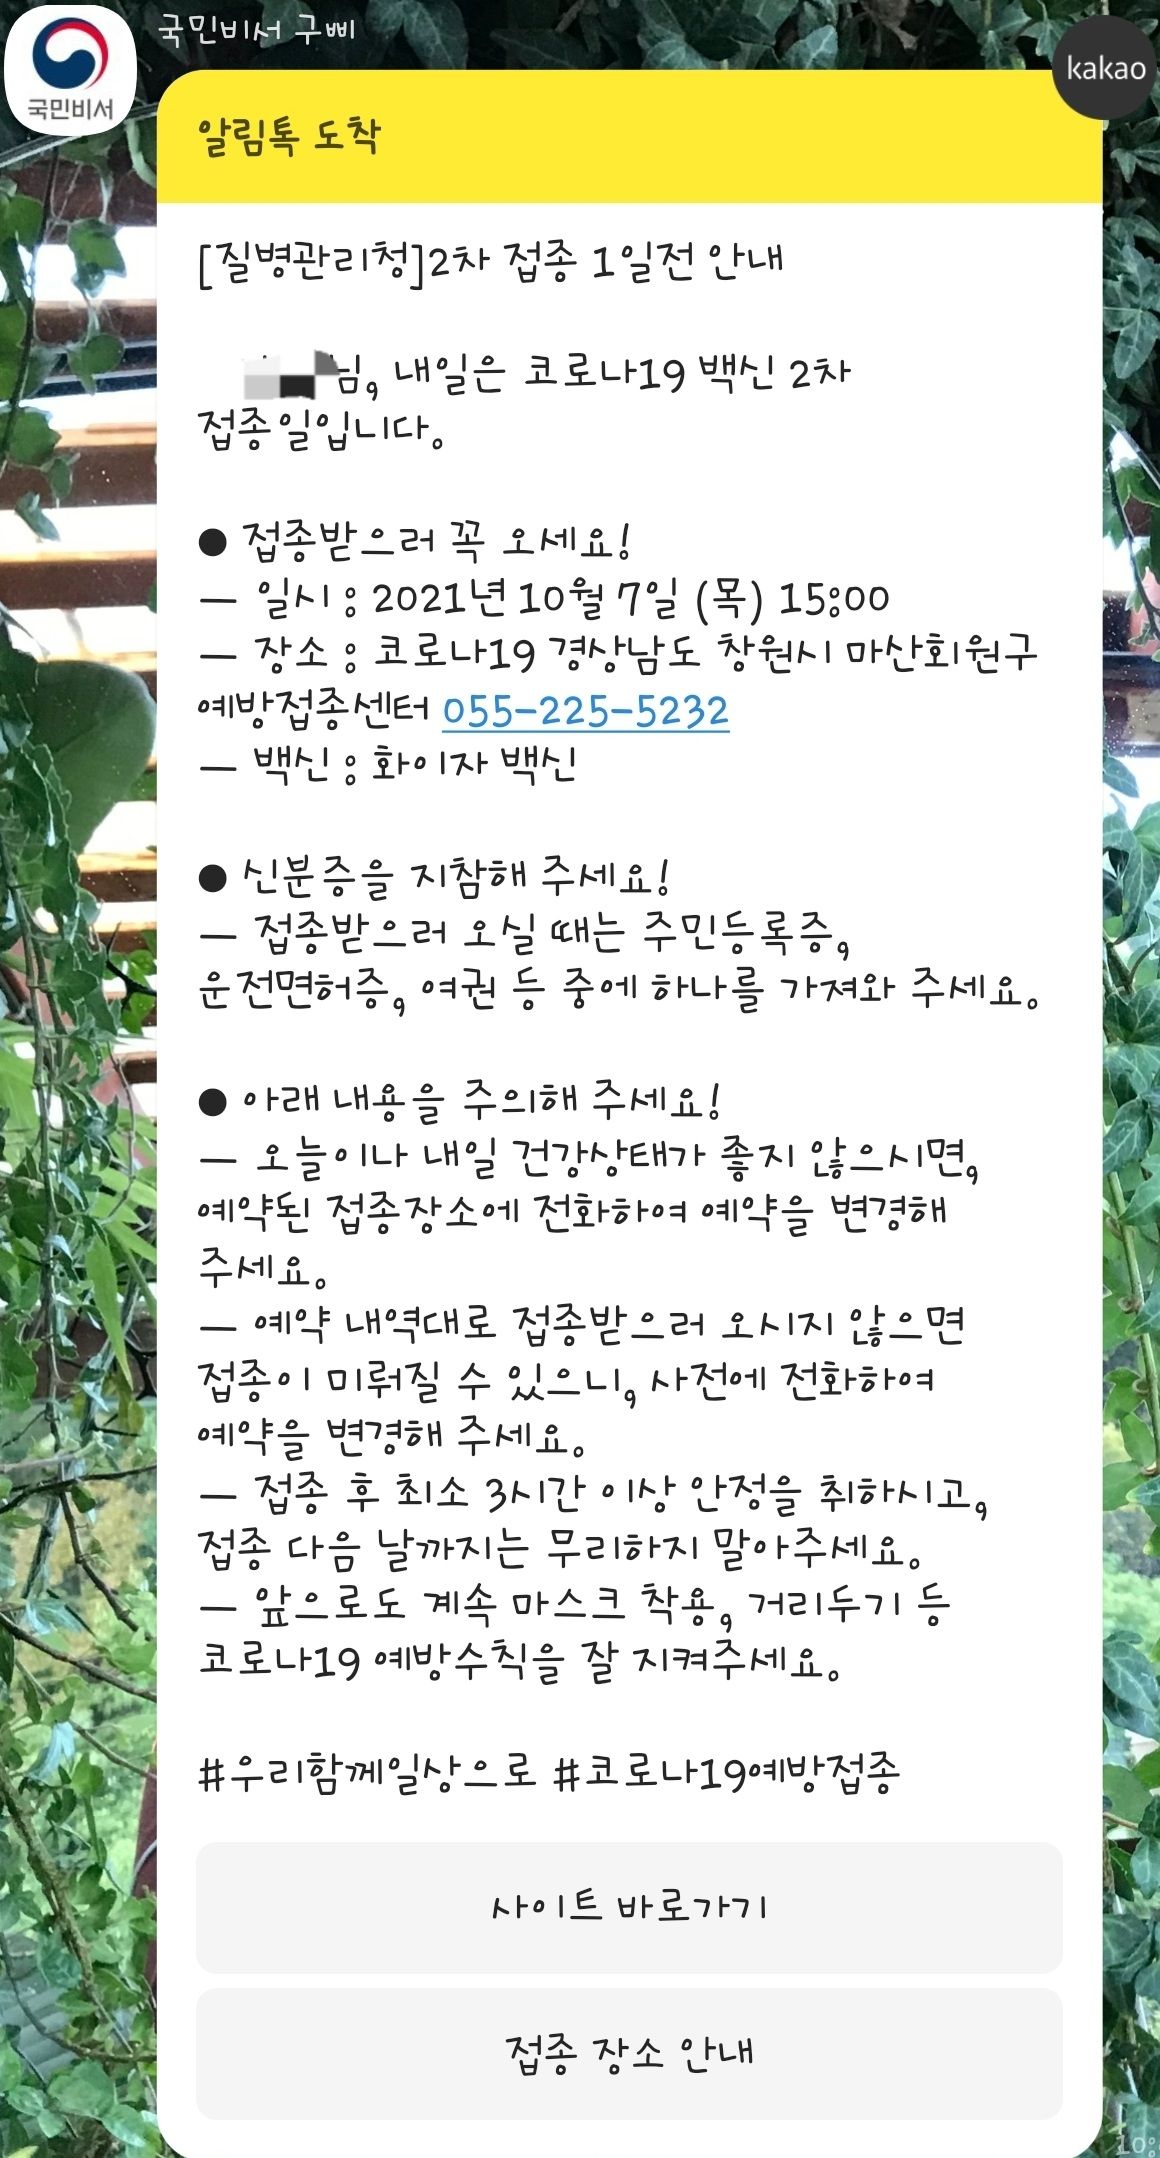 국민비서 구삐
국민비서
kakao
알림톡 도착
[질병관리청]2차 접종 1일전 안내
님, 내일은 코로나19 백신 2차
접종일입니다.
● 접종받으러 꼭 오세요!
— 일시 : 2021년 10월 7일 (목) 15:00
— 장소 : 코로나19 경상남도 창원시 마산회원구
예방접종센터 055-225-5232
— 백신 : 화이자 백신
● 신분증을 지참해 주세요!
— 접종받으러 오실 때는 주민등록증,
운전면허증, 여권 등 중에 하나를 가져와 주세요.
● 아래 내용을 주의해 주세요!
— 오늘이나 내일 건강상태가 좋지 않으시면,
예약된 접종장소에 전화하여 예약을 변경해
주세요.
— 예약 내역대로 접종받으러 오시지 않으면
접종이 미뤄질 수 있으니, 사전에 전화하여
예약을 변경해 주세요.
— 접종 후 최소 3시간 이상 안정을 취하시고,
접종 다음 날까지는 무리하지 말아주세요.
— 앞으로도 계속 마스크 착용, 거리두기 등
코로나19 예방수칙을 잘 지켜주세요.
#우리함께일상으로 #코로나19예방접종
사이트 바로가기
접종 장소 안내